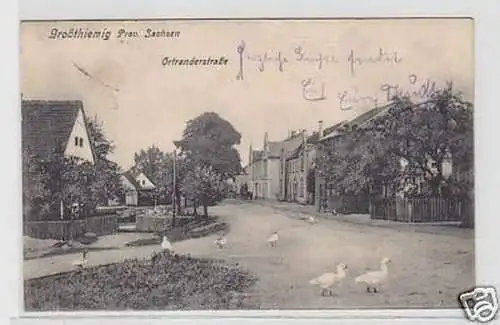 Großthiemig Prov. Sachsen
Ortranderstraße
Herzliche Grüsse sendet